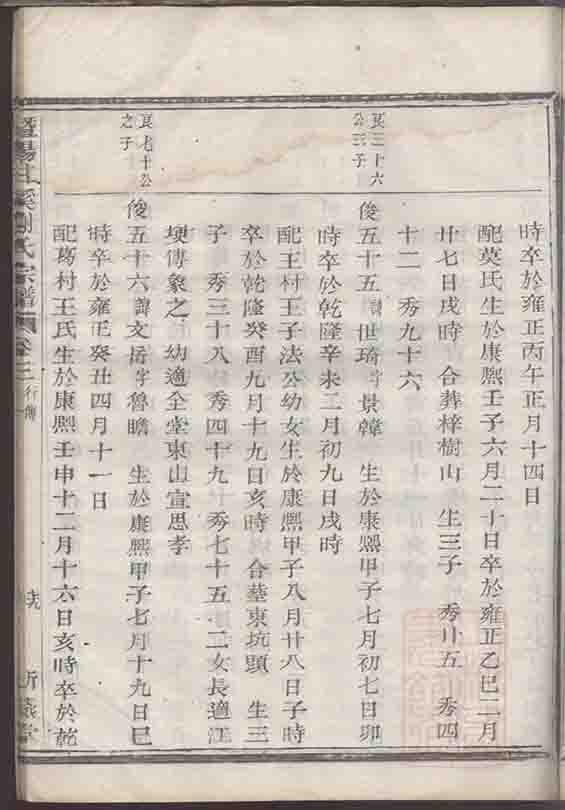 時卒於雍正丙午正月十四日
配莫氏生於康熙壬子六月二十日卒於雍正乙巳二月
廿七日戌時 合葬梓樹山 生三子 秀卅五 秀四
十二 秀九十六
良三十六
公三子
俊五十五諱世琦字景韓 生於康熙甲子七月初七日卯
時卒於乾隆辛未二月初九日戌時
配王村王子法公幼女生於康熙甲子八月廿八日子時
卒於乾隆癸酉九月十九日亥時 合塟東坑頭 生三
子 秀三十八 秀四十九 秀七十五 二女長適江
埂傅象之 幼適全堂東山宣思孝
良七十公
之子
俊五十六諱文 字魯瞻 生於康熙甲子七月十九日巳
時卒於雍正癸丑四月十一日
配葛村王氏生於康熙壬申十二月十六日亥時卒於乾
暨陽 溪 氏宗譜 卷三 行傳